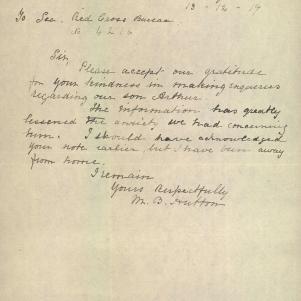 13 - 12 - 17
To Sec. Red Cross Bureau
No 4216
Sir,
Please accept our gratitude
for your kindness in making enquiries
regarding our son Arthur.
The information has greatly
lessened the anxiety we had concerning
him. I should have acknowledged
your note earlier, but I have been away
from home.
I remain
Yours Respectfully
M. B. Hutton